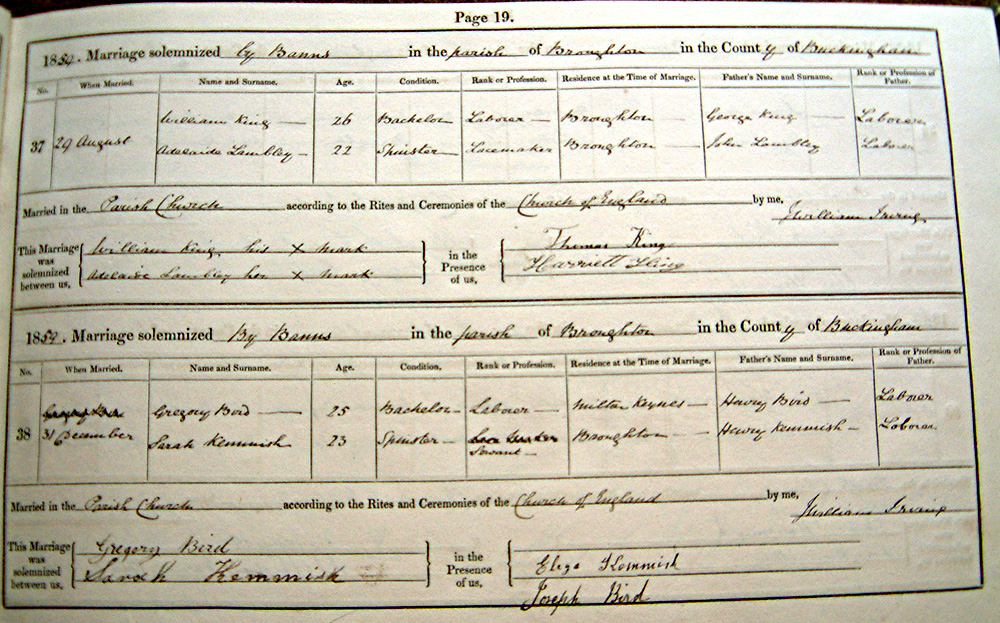 Page 19.
1859. Marriage solemnized by Banns in the parish of Broughton in the County of Buckingham
No. When Married. Name and Surname. Age. Condition. Rank or Profession. Residence at the Time of Marriage. Father's Name and Surname. Rank or Profession of Father.
William King 26 Bachelor Laborer Broughton George King Laborer
37 29 August
Adelaide Lambley 22 Spinster Lacemaker Broughton John Lambley Laborer
Married in the Parish Church according to the Rites and Ceremonies of the Church of England by me, William Irving
This Marriage was solemnized between us, William King his X mark in the Presence of us, Thomas King
Adelaide Lambley her X mark Harriett
1859. Marriage solemnized By Banns in the parish of Broughton in the County of Buckingham
No. When Married. Name and Surname. Age. Condition. Rank or Profession. Residence at the Time of Marriage. Father's Name and Surname. Rank or Profession of Father.
Gregory Bird 25 Bachelor Laborer Milton Keynes Henry Bird Laborer
38 31 December Sarah Kemmish 23 Spinster Servant Broughton Henry Kemmish Laborer
Married in the Parish Church according to the Rites and Ceremonies of the Church of England by me, William Irving
This Marriage was solemnized between us, Gregory Bird in the Presence of us,
Sarah Kemmish Eliza Kemmish
Joseph Bird